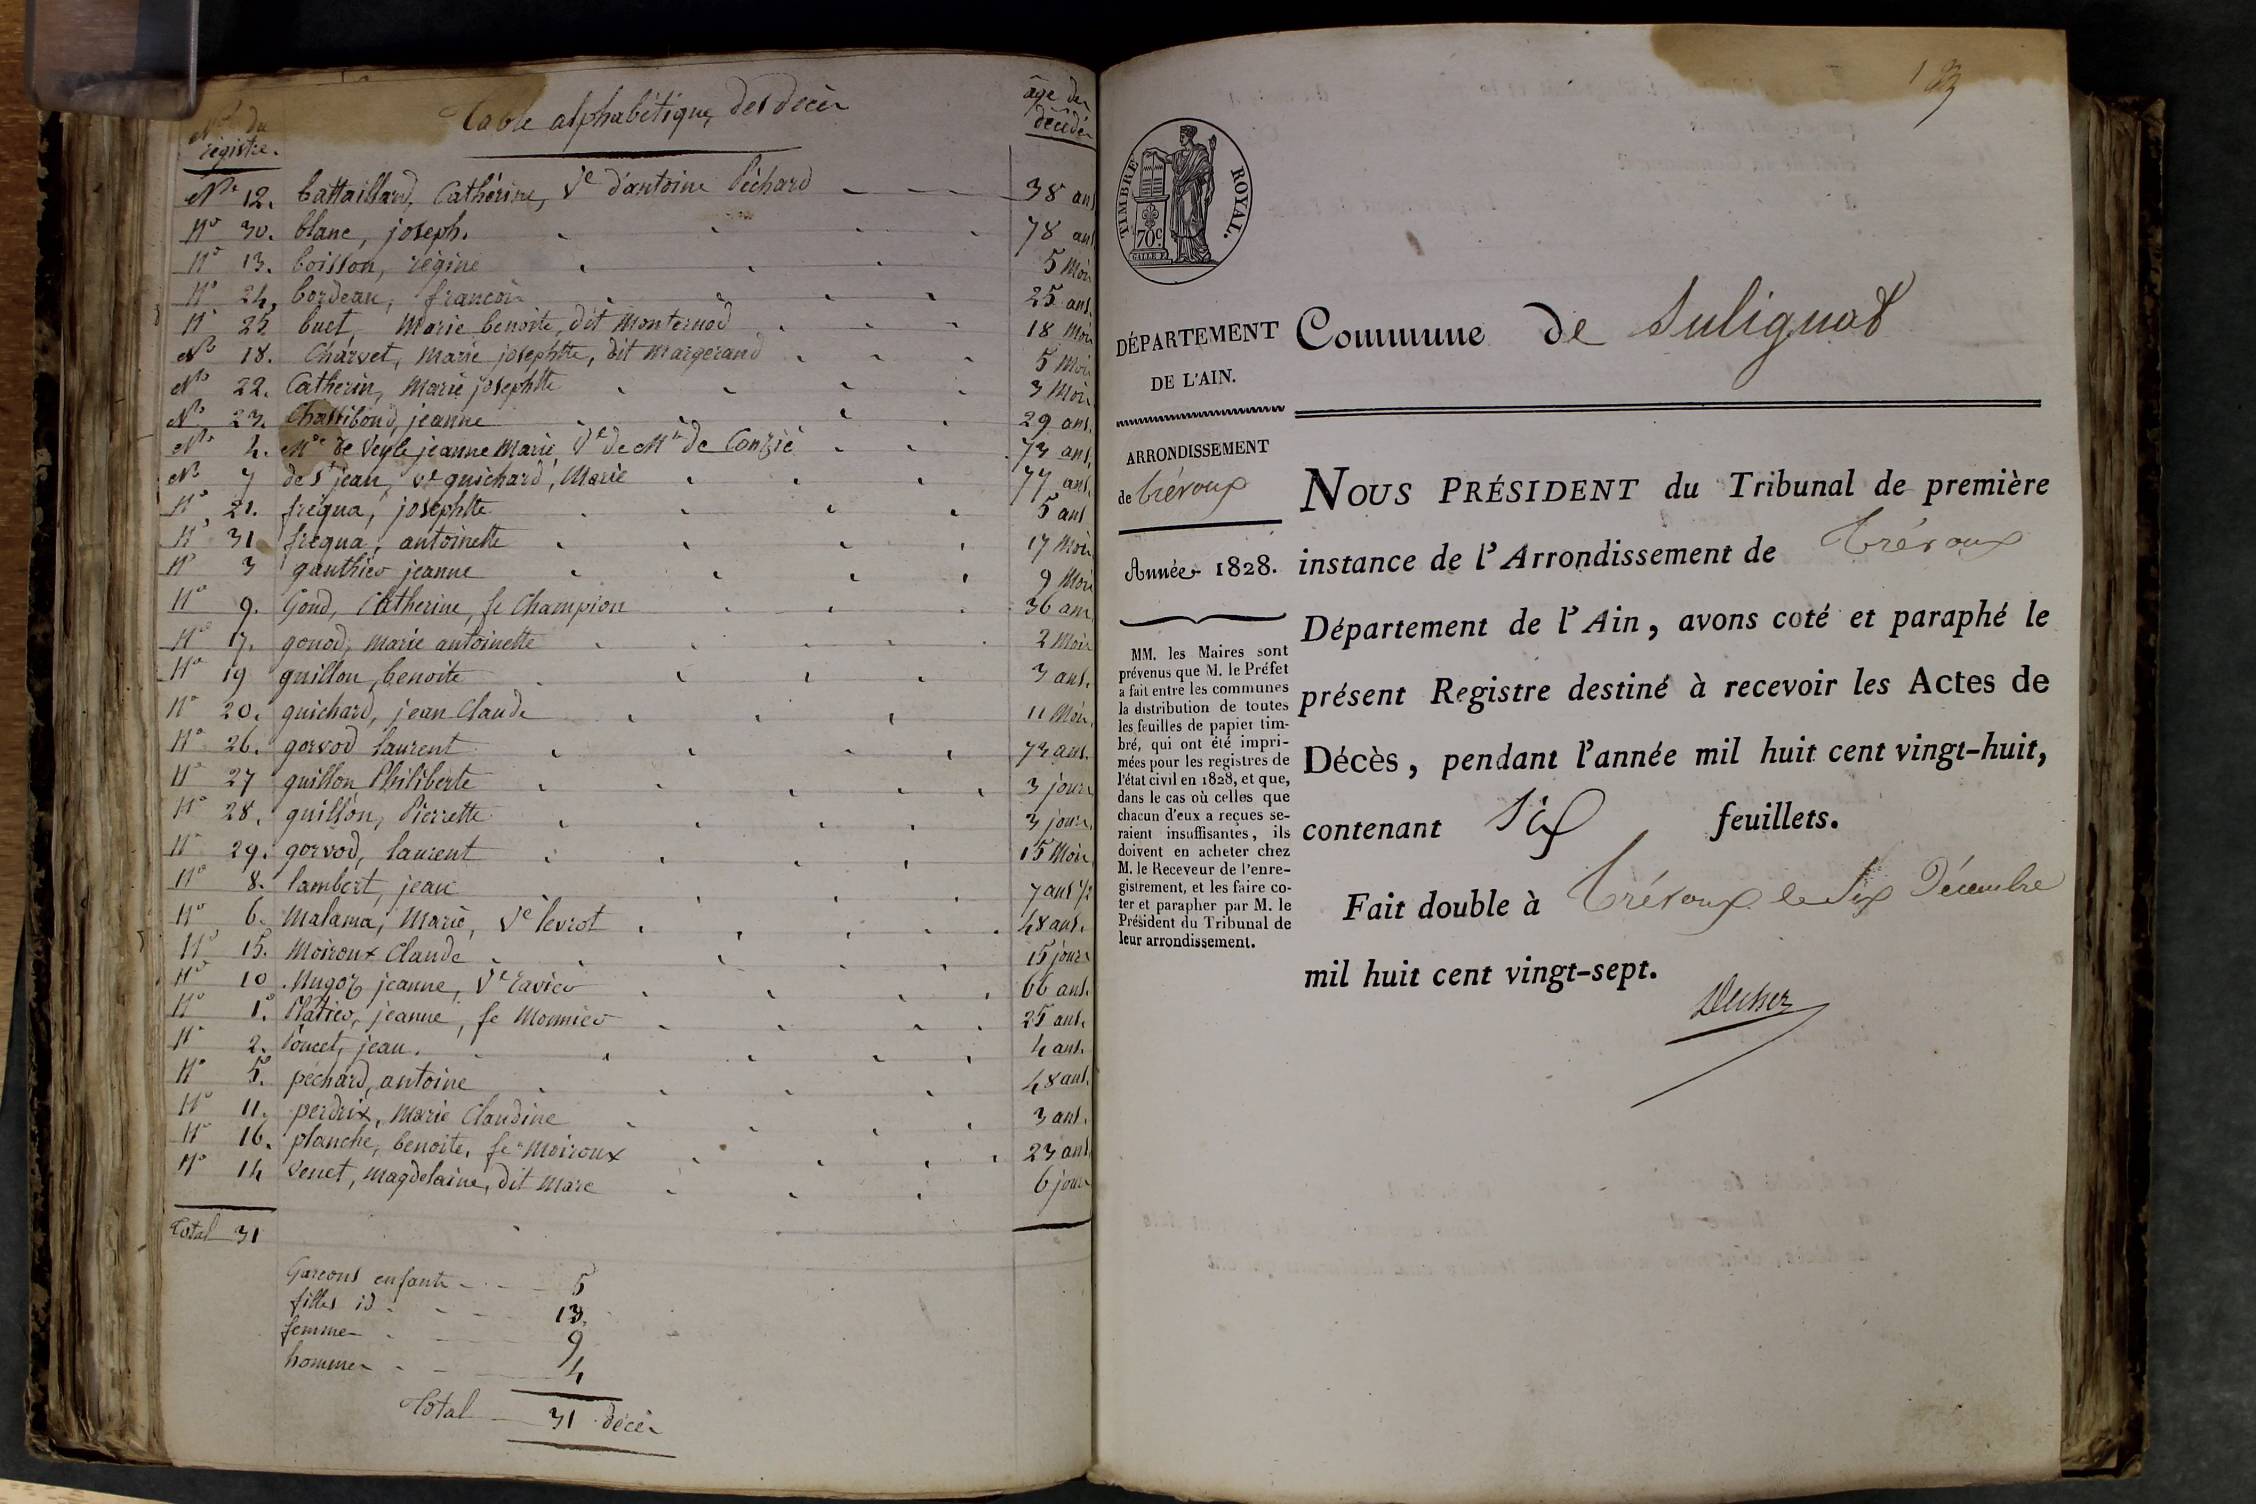 Nos du
régistre.
Table alphabétique des décès
âge des
décédés
No 12. battaillard, Cathérine, Ve d'antoine Péchard 38 ans
No 30. blanc, joseph. 78 ans
No 13. boisson, régine 5 Mois
No 24. bordeau, francois 25 ans.
No 25 buet, Marie benoite, dit Monternod 18 Mois
No 18. Charvet, Marie josephtte, dit Margerand 5 Mois
No 22. Catherin, Marie josephtte 3 Mois
No 23. Chassibout, jeanne 29 ans.
No 4. Me de Veyle jeanne Marie Ve de Mr de Conzié 73 ans.
No 7 de St jean, ve guichard, Marie 77 ans.
No 21. frequa, josephtte 5 ans
No 31 frequa, antoinette 17 Mois
No 3 gauthier jeanne 9 Mois
No 9. Gond, Catherine, fe Champion 36 ans
No 17. gonod, Marie antoinette 2 Mois
No 19 guillon, benoite 3 ans.
No 20. guichard, jean Claude 11 Mois.
No 26. gorvod laurent 73 ans.
No 27 guillon Philiberte 3 jours
No 28. guillon, Pierrette 3 jours
No 29. gorvod, laurent 15 Mois
No 8. lambert, jean 7 ans 1/2
No 6. Malama, Marie, Ve levrot 48 ans.
No 15. Moiroux Claude 15 jours
No 10. Mugoz jeanne, Ve ravier 66 ans.
No 1. Platier, jeanne, fe Monnier 25 ans.
No 2. Poncet, jean. 4 ans.
No 5. péchard, antoine 48 ans.
No 11. perdrix, Marie Claudine 3 ans.
No 16. planche, benoite, fe Moiroux 23 ans
No 14 Venet, Magdelaine, dit Marc 6 jours
Total 31
Garcons enfants 5
filles id 13.
femmes 9
hommes 4
Total 31 décès
TIMBRE ROYAL.
70c
DÉPARTEMENT
DE L'AIN.
Commune de Sulignat
ARRONDISSEMENT
de trévoux
Année 1828.
MM. les Maires sont
prévenus que M. le Préfet
a fait entre les communes
la distribution de toutes
les feuilles de papier tim-
bré, qui ont été impri-
mées pour les registres de
l'état civil en 1828, et que,
dans le cas où celles que
chacun d'eux a reçues se-
raient insuffisantes, ils
doivent en acheter chez
M. le Receveur de l'enre-
gistrement, et les faire co-
ter et parapher par M. le
Président du Tribunal de
leur arrondissement.
NOUS PRÉSIDENT du Tribunal de première
instance de l'Arrondissement de Trévoux
Département de l'Ain, avons coté et paraphé le
présent Registre destiné à recevoir les Actes de
Décès, pendant l'année mil huit cent vingt-huit,
contenant Six feuillets.
Fait double à Trévoux le Six Décembre
mil huit cent vingt-sept.